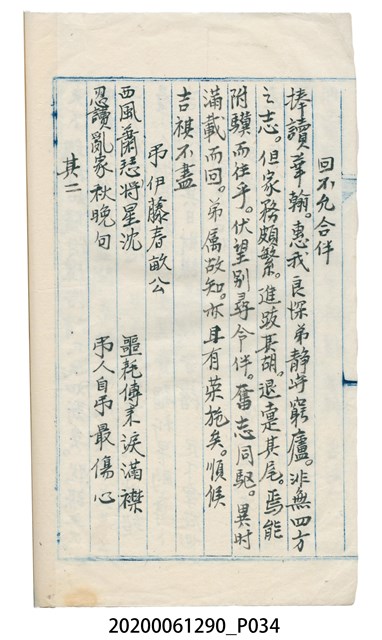 回不允合伴
捧讀華翰。惠我良深弟靜守窮廬。非無四方
之志。但家務頗繁。進跋其胡。退疐其尾。焉能
附驥而往乎。伏望別尋令伴。奮志同驅。異時
滿載而回。弟屬故知。亦且有榮施矣。順候
吉祺不盡
弔伊藤春畝公
西風蕭瑟將星沈 噩耗傳來淚滿襟
忍讀亂家秋晚句 弔人自弔最傷心
其二
20200061290_P034